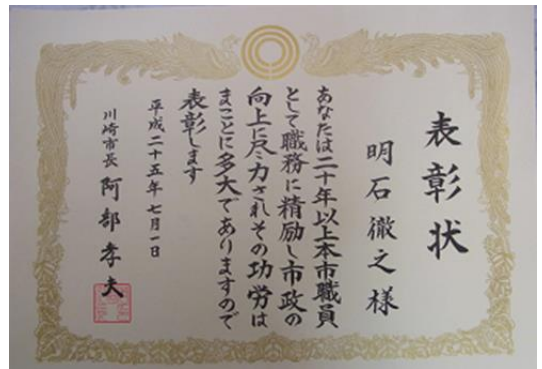 表彰状
明石徹之様
あなたは二十年以上本市職員
として職務に精励し市政の
向上に尽力されその功労は
まことに多大でありますので
表彰します
平成二十五年七月一日
川崎市長 阿部孝夫